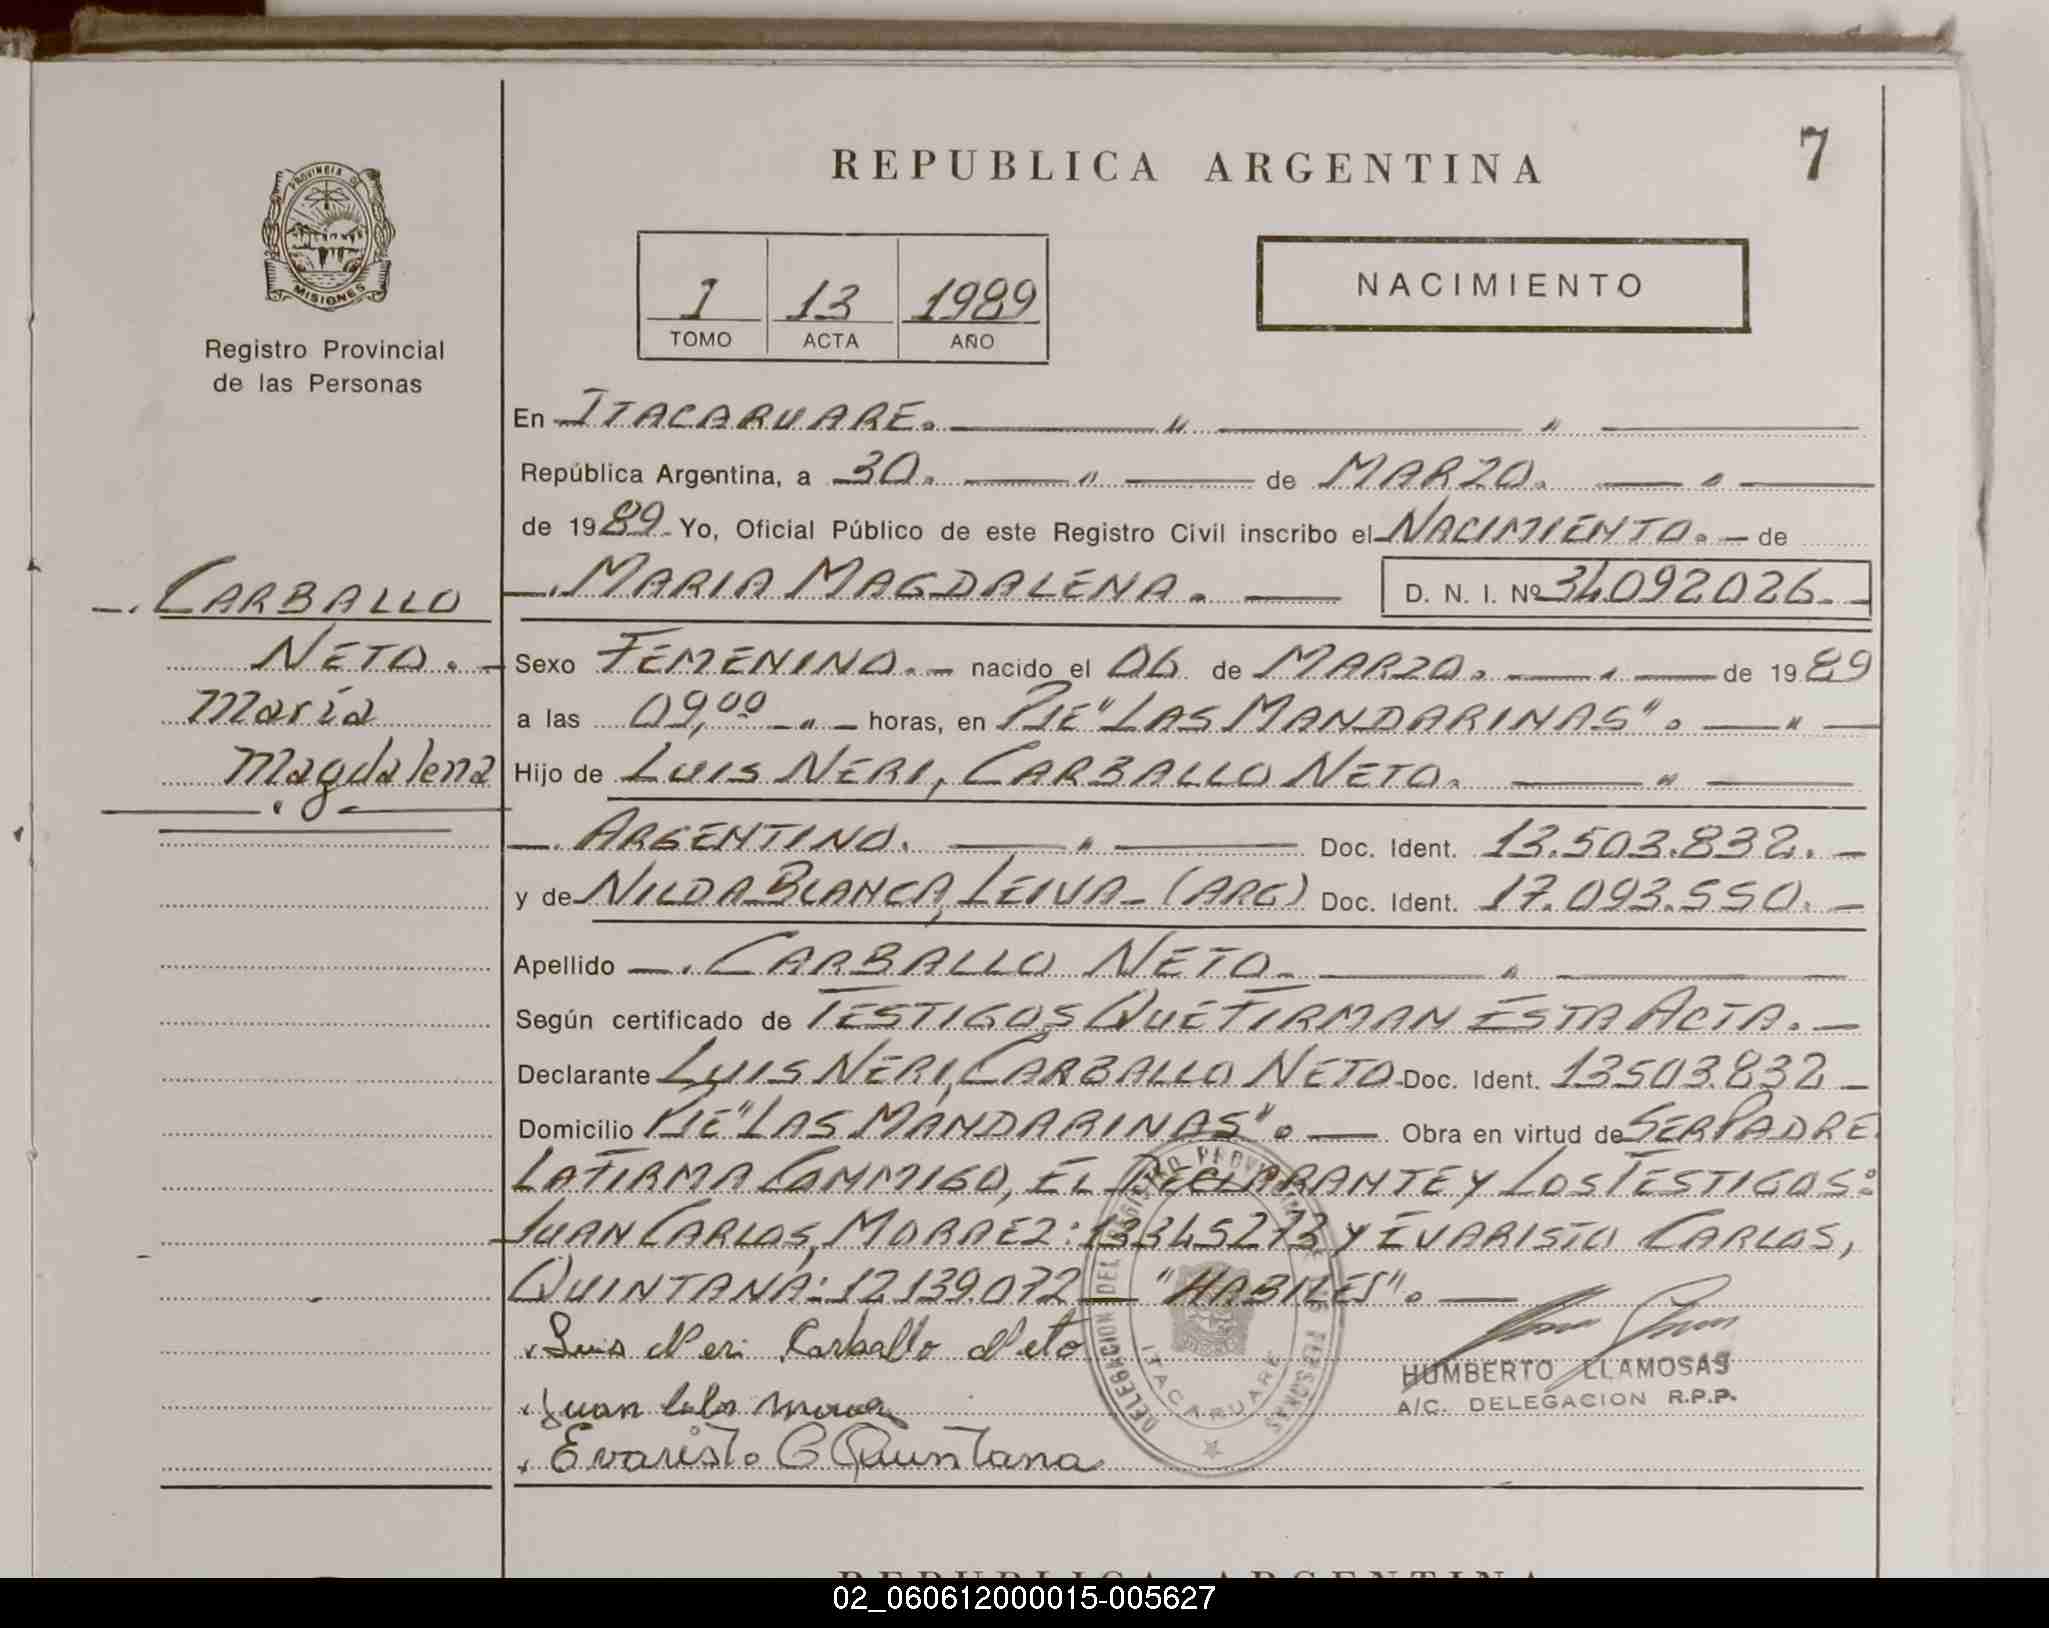 REPUBLICA ARGENTINA
7
PROVINCIA DE
MISIONES
Registro Provincial
de las Personas
1 13 1989
TOMO ACTA AÑO
NACIMIENTO
CARBALLO
NETO.
María
Magdalena
En ITACARUARE.
República Argentina, a 30. de MARZO.
de 1989 Yo, Oficial Público de este Registro Civil inscribo el NACIMIENTO. de
MARIA MAGDALENA. D. N. I. Nº 34092026
Sexo FEMENINO. nacido el 06 de MARZO. de 1989
a las 09,00 horas, en PJE "LAS MANDARINAS".
Hijo de LUIS NERI, CARBALLO NETO.
ARGENTINO. Doc. Ident. 13.503.832.
y de NILDA BLANCA, LEIVA - (ARG) Doc. Ident. 17.093.550.
Apellido CARBALLO NETO.
Según certificado de TESTIGOS QUE FIRMAN ESTA ACTA.
Declarante LUIS NERI, CARBALLO NETO Doc. Ident. 13503.832
Domicilio PJE "LAS MANDARINAS". Obra en virtud de SER PADRE.
LA FIRMA CONMIGO, EL DECLARANTE Y LOS TESTIGOS:
JUAN CARLOS, 13345273 Y EVARISTO CARLOS,
QUINTANA: 12.139.072 "HABILES".
Luis Neri Carballo Neto
Juan
Evaristo C Quintana
DELEGACION DEL REGISTRO PROVINCIAL DE LAS PERSONAS
ITACARUARE
HUMBERTO LLAMOSAS
A/C. DELEGACION R.P.P.
REPUBLICA ARGENTINA
02_060612000015-005627